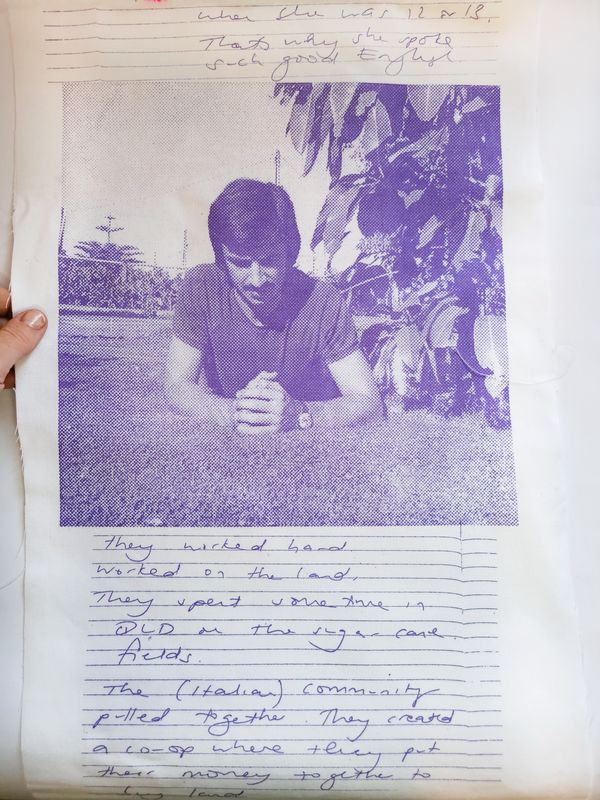 when she was 12 or 13.
Thats why she spoke
such good English.
they worked hard
worked on the land,
They spent some time in
QLD on the sugar cane
fields.
The (Italian) community
pulled together. They created
a co-op where they put
their money together to
buy land